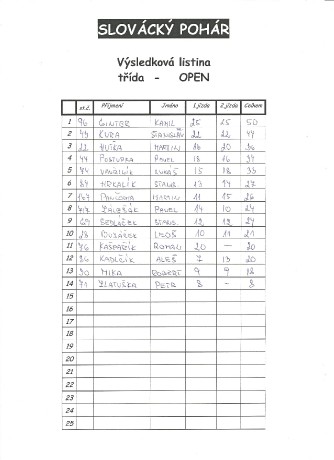 SLOVÁCKÝ POHÁR
Výsledková listina
třída - OPEN
st.č. Příjmení Jméno 1 jízda 2 jízda Celkem
1 96 GINTER KAMIL 25 25 50
2 KURA STANISLAV 22 22 44
3 HUŠKA MARTIN 16 20 36
4 44 POSTUPKA PAVEL 18 16 34
5 74 LUKÁŠ 15 18 33
6 84 STAN. 13 14 27
7 MARTIN 11 15 26
8 PAVEL 14 10 24
9 69 SEDLÁČEK 12 12 24
10 28 10 11 21
11 76 KAŠPAŘÍK ROMAN 20 - 20
12 26 KADLČÍK ALEŠ 7 13 20
13 30 MIKA ROBERT 9 9 18
14 71 ZLATUŠKA PETR 8 - 8
15
16
17
18
19
20
21
22
23
24
25